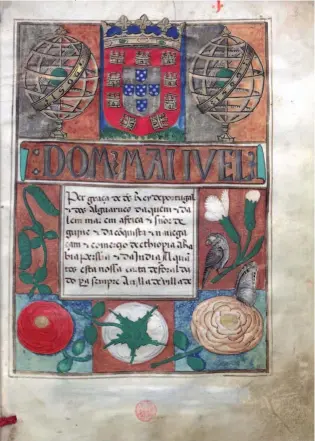 :DOM:MANVEL:
Per graça de ds Rey de portugal
& dos Alguarues daquem & da
lem mar em africa & sñor de
guine & da cõquista & nauega
çam & comerçio de ethiopia Ara
bia perssia & da India A quã
tos esta nossa carta de foral da
do pera sempre A villa de